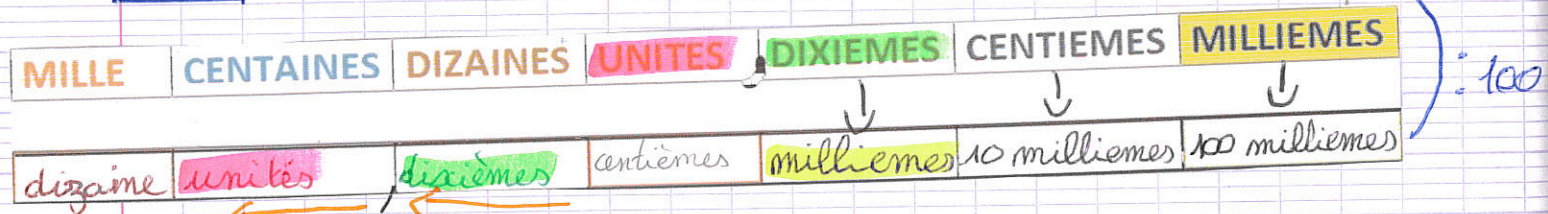 MILLE CENTAINES DIZAINES UNITES , DIXIEMES CENTIEMES MILLIEMES
: 100
dizaine unités , dixièmes centièmes milliemes 10 milliemes 100 milliemes